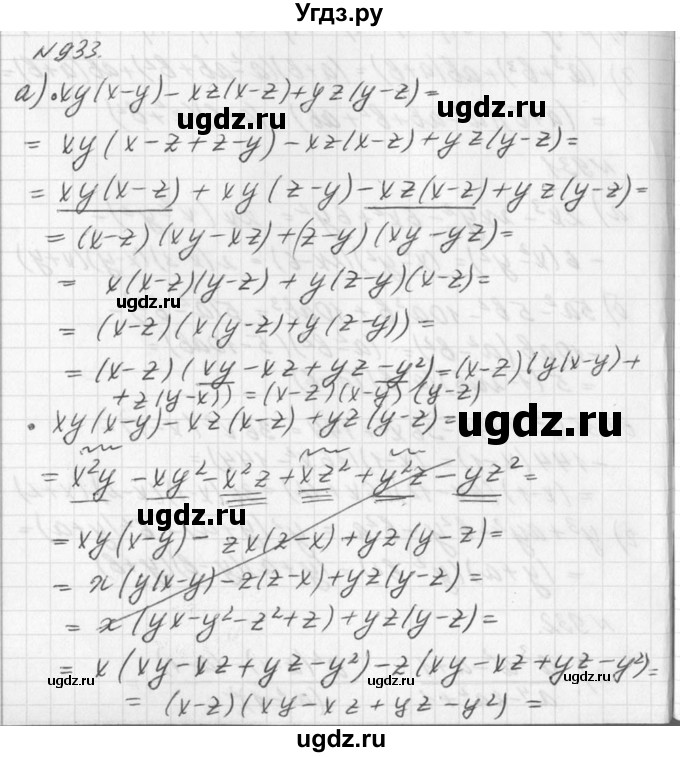 Угдз.ру
№933.
а) • xy(x-y) - xz(x-z) + yz(y-z) =
ugdz.ru ugdz.ru
= xy(x-z+z-y) - xz(x-z) + yz(y-z) =
= xy(x-z) + xy(z-y) - xz(x-z) + yz(y-z) =
= (x-z)(xy-xz) + (z-y)(xy-yz) =
= x(x-z)(y-z) + y(z-y)(x-z) =
ugdz.ru
= (x-z)(x(y-z) + y(z-y)) =
= (x-z)(xy - xz + yz - y²) = (x-z)(y(x-y) +
+ z(y-x)) = (x-z)(x-y)(y-z)
• xy(x-y) - xz(x-z) + yz(y-z) =
ugdz.ru
= x²y - xy² - x²z + xz² + y²z - yz² =
ugdz.ru
= xy(x-y) - zx(z-x) + yz(y-z) =
= x(y(x-y) - z(z-x) + yz(y-z) =
= x(yx - y² - z² + z) + yz(y-z) =
= x(xy - xz + yz - y²) - z(xy - xz + yz - y²) =
ugdz.ru ugdz.ru
= (x-z)(xy - xz + yz - y²) =
ugdz.ru